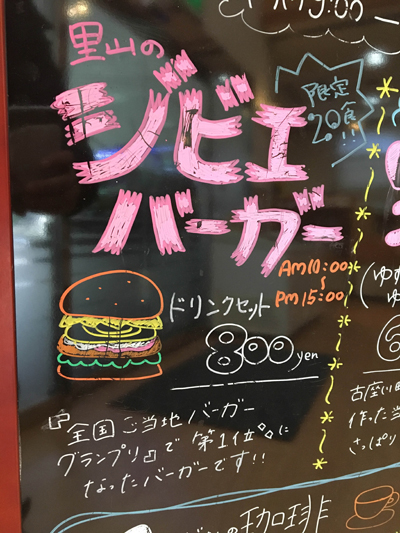 里山の
ジビエ
バーガー
限定
20食!!
AM10:00
〜
PM15:00
ドリンクセット
800yen
全国ご当地バーガー
グランプリで第1位に
なったバーガーです!!
(ゆず
ゆ
古座川町
作った当
さっぱり
の珈琲